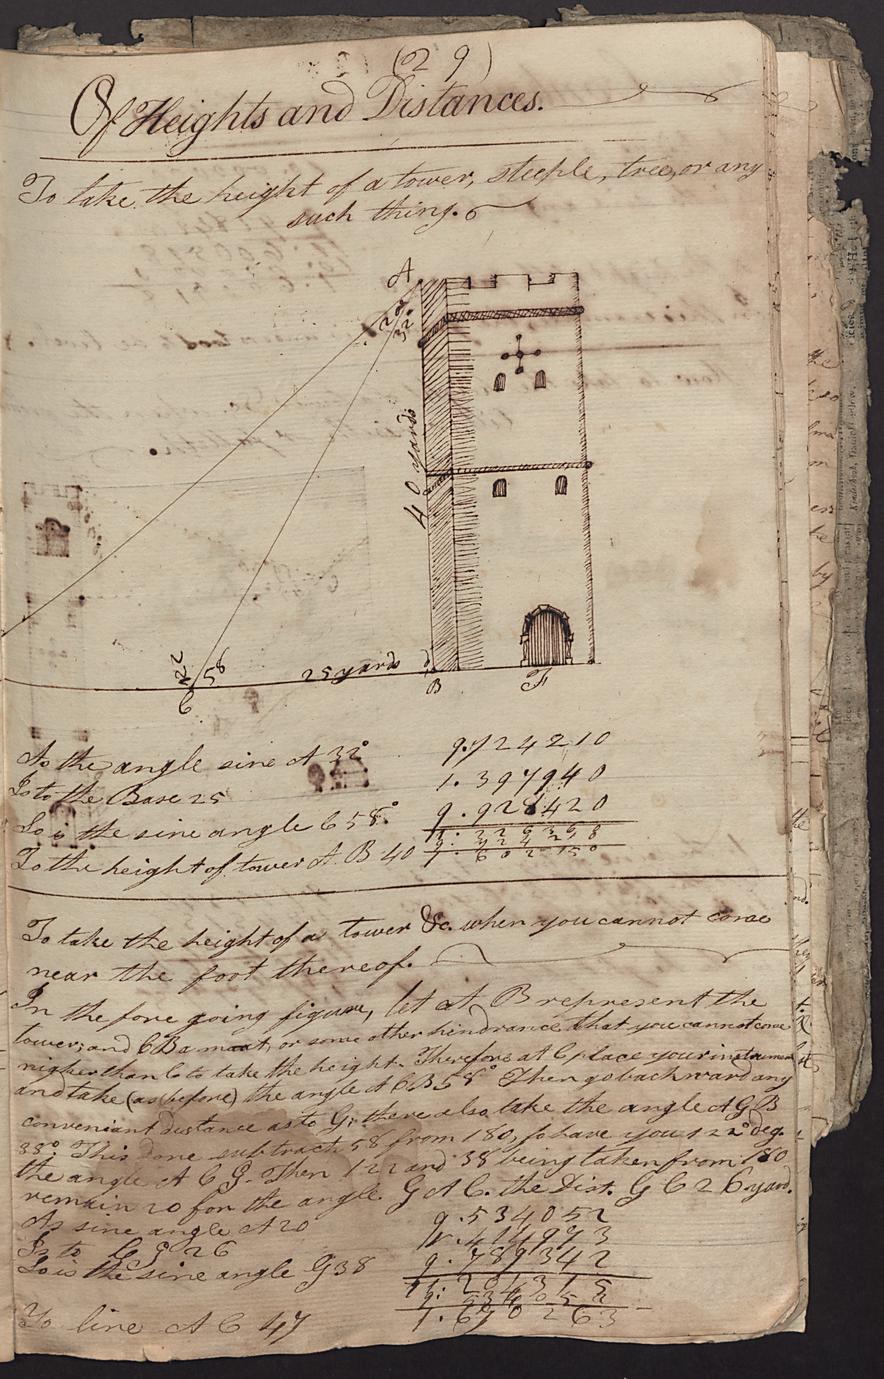 (29)
Of Heights and Distances.
To take the height of a tower, steeple, tree, or any
such thing.
A
20
32
40 yards
122
58
25 yards
C
B
F
As the angle sine A 32° 9.724210
Is to the Base 25 1.397940
So is the sine angle C 58° 9.928420
11.326360
9.724210
To the height of tower A. B 40 1.602150
To take the height of a tower &c. when you cannot come
near the foot thereof.
In the fore going figure, let at B represent the
tower, and CB a moat, or some other hindrance that you cannot come
nigher than C to take the height. Therefore at C place your instrument
and take (as before) the angle A C B 58° Then go backward any
conveniant distance as to G, there also take the angle A G B
38° This done subtract 58 from 180, so have you 122° deg.
the angle A C G. Then 122 and 38 being taken from 180
remain 20 for the angle G A C. the Dist. G C 26 yard.
As sine angle A 20 9.534052
Is to C G 26 1.414973
So is the sine angle G 38 9.789342
11.204315
9.534052
To line A C 47 1.670263